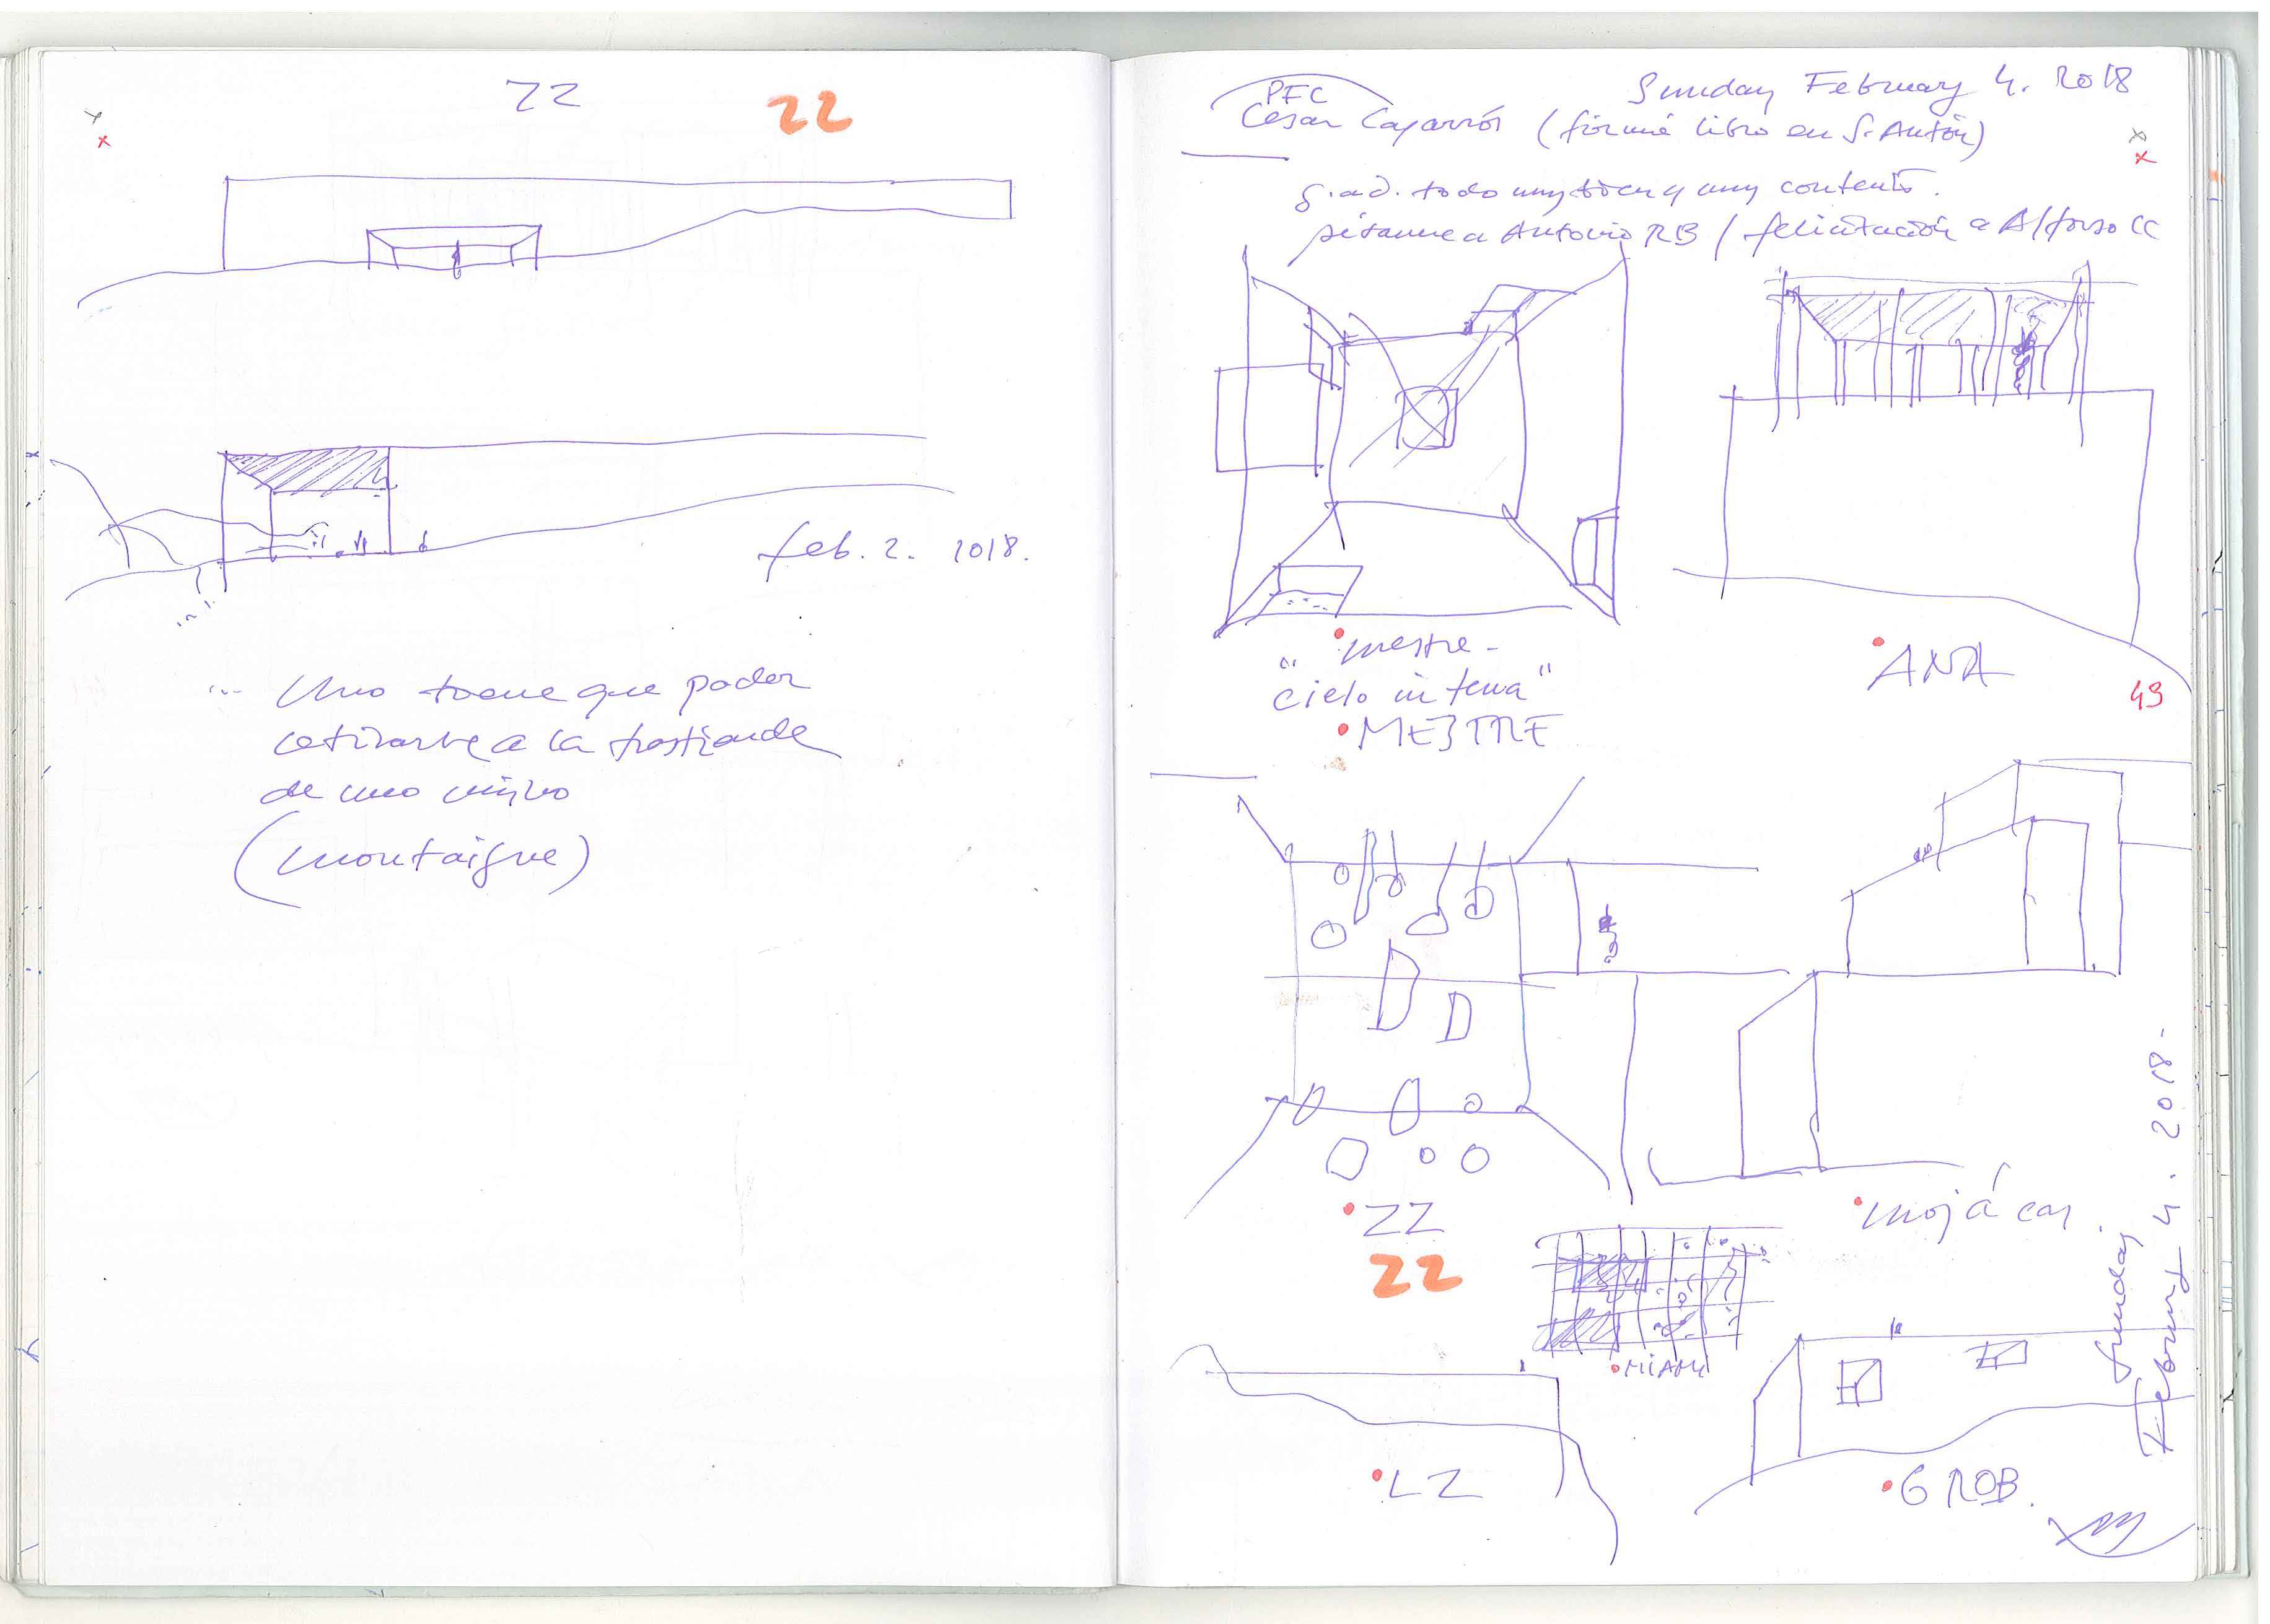 ZZ
ZZ
feb. 2. 2018.
... Uno tiene que poder
retirarse a la trastienda
de uno mismo
(Montaigne)
Sunday February 4. 2018
PFC
César Caparrós (firmé libro en S. Antón)
g.a.d. todo muy bien y muy contento.
a Antonio RB / felicitación a Alfonso CC
"mestre -
cielo in terra"
MESTRE
ANA
43
ZZ
ZZ
mojácar
MIAMI
LZ
G ROB.
Sunday
February 4. 2018-